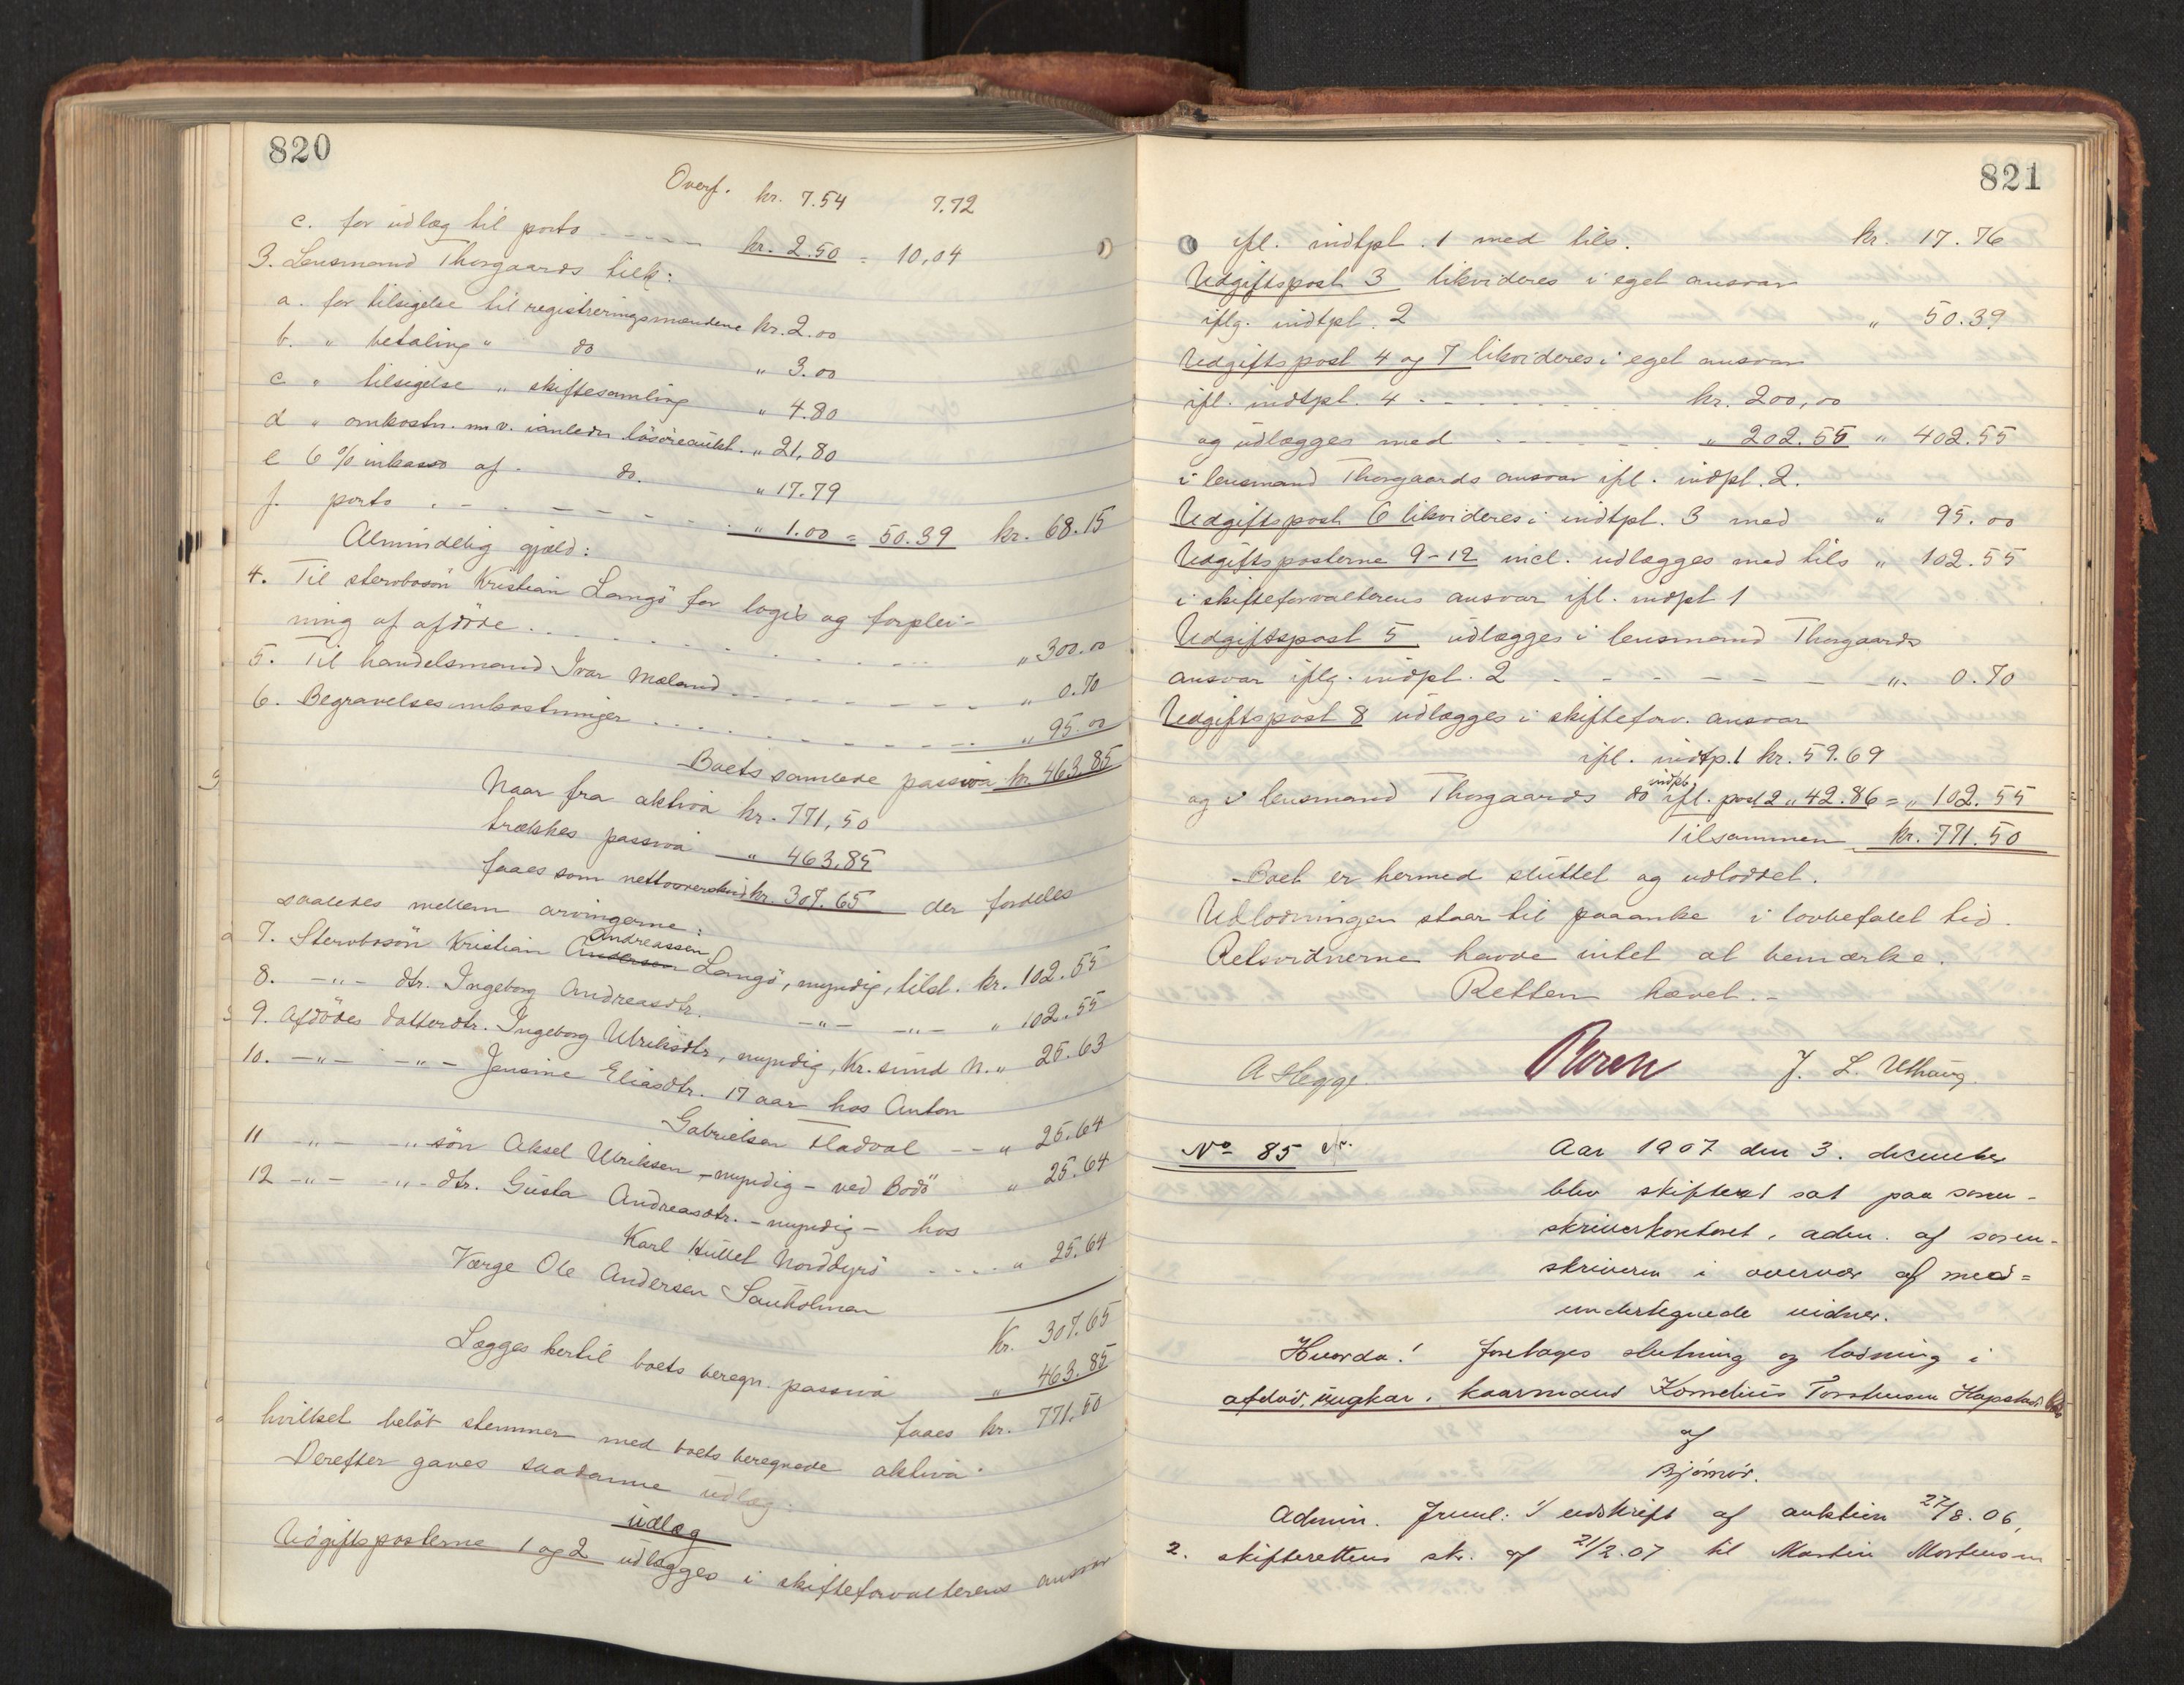 820
Overf. kr. 7.54 7.72
c. for udlæg til porto - - - - - kr. 2.50 = 10,04
3. Lensmand Thorgaards tilk:
a. for tilsigelse til registreringsmændene kr. 2.00
b. " betaling " do " 3.00
c " tilsigelse " skiftesamling " 4.80
d " omkostn. m. v. ianledn løsøreaukt. " 21,80
e 6 % inkasso af do. " 17.79
f. porto . - - - - - - - " 1.00 = 50.39 kr. 68.15
Almindelig gjæld:
4. Til stervbosön Kristian Langö for logis og forplei-
ning af afdöde . . . . . . . . " 300.00
5. Til handelsmand Ivar Mæland - - - - - - - " 0.70
6. Begravelsesomkostninger . . . - - - - - - " 95.00
Boets samlede passiva kr. 463.85
Naar fra aktiva kr. 771,50
trækkes passiva " 463.85
faaes som nettooverskud kr. 307.65 der fordeles
saaledes mellem arvingerne:
7. Stervbosön Kristian Andersen Andreassen Langö, myndig, tilst. kr. 102.55
8. -"- dtr. Ingeborg Andreasdtr. -"- -"- " 102.55
9. Afdödes datterdtr. Ingeborg Ulriksdtr, myndig, Kr.sund N. " 25.63
10. -"- -"- Jensine Eliasdtr. 17 aar hos Anton
Gabrielsen Fladval - - " 25.64
11 -"- -"- sön Aksel Ulriksen - myndig - ved Bodö " 25.64
12 -"- -"- dtr. Gusta Andreasdtr. - myndig - hos
Karl Hüttel Norddyrö . . . . " 25.64
Værge Ole Andersen Sauholmen
Kr. 307.65
Lægges hertil boets beregn. passiva " 463.85
faaes kr. 771.50
hvilket beløb stemmer med boets beregnede aktiva.
Derefter gaves saadanne udlæg:
udlæg
Udgiftsposterne 1 og 2 udlægges i skifteforvalterens ansvar
821
ifl. indtpt. 1 med tils. kr. 17.76
Udgiftspost 3 likvideres i eget ansvar
iflg. indtpt. 2 " 50.39
Udgiftspost 4 og 7 likvideres i eget ansvar
ifl. indtpt. 4 - - - - - - - kr. 200,00
og udlægges med - - - - - " 202.55 " 402.55
i lensmand Thorgaards ansvar ifl. indpt. 2.
Udgiftspost 6 likvideres i indtpt. 3 med " 95.00
Udgiftsposterne 9-12 incl. udlægges med tils " 102.55
i skifteforvalterens ansvar ifl. indpt 1
Udgiftspost 5 udlægges i lensmand Thorgaards
ansvar iflg. indpt. 2 - - - - - - - - " 0.70
Udgiftspost 8 udlægges i skifteforv. ansvar
ifl. indtp. 1 kr. 59.69
indpt.
og i lensmand Thorgaards do ifl. post 2 " 42.86 = " 102.55
Tilsammen kr. 771.50
Boet er hermed sluttet og udloddet.
Udlodningen staar til paaanke i lovbefalet tid.
Retsvidnerne havde intet at bemærke.
Retten hævet. -
A Hegge. J. L. Uthaug.
No 85
Aar 1907 den 3. december
blev skifteret sat paa soren-
skriverkontoret, adm. af soren-
skriveren i overvær af med=
undertegnede vidner.
Hvorda! foretages slutning og lodning i
afdød, ungkar, kaarmand Kornelius Torstensen Hopstad bo
af
Bjørnør.
Admin. freml: 1/ udskrift af auktion 27/8. 06,
2. skifterettens skr. af 21/2. 07 til Martin Mortensen